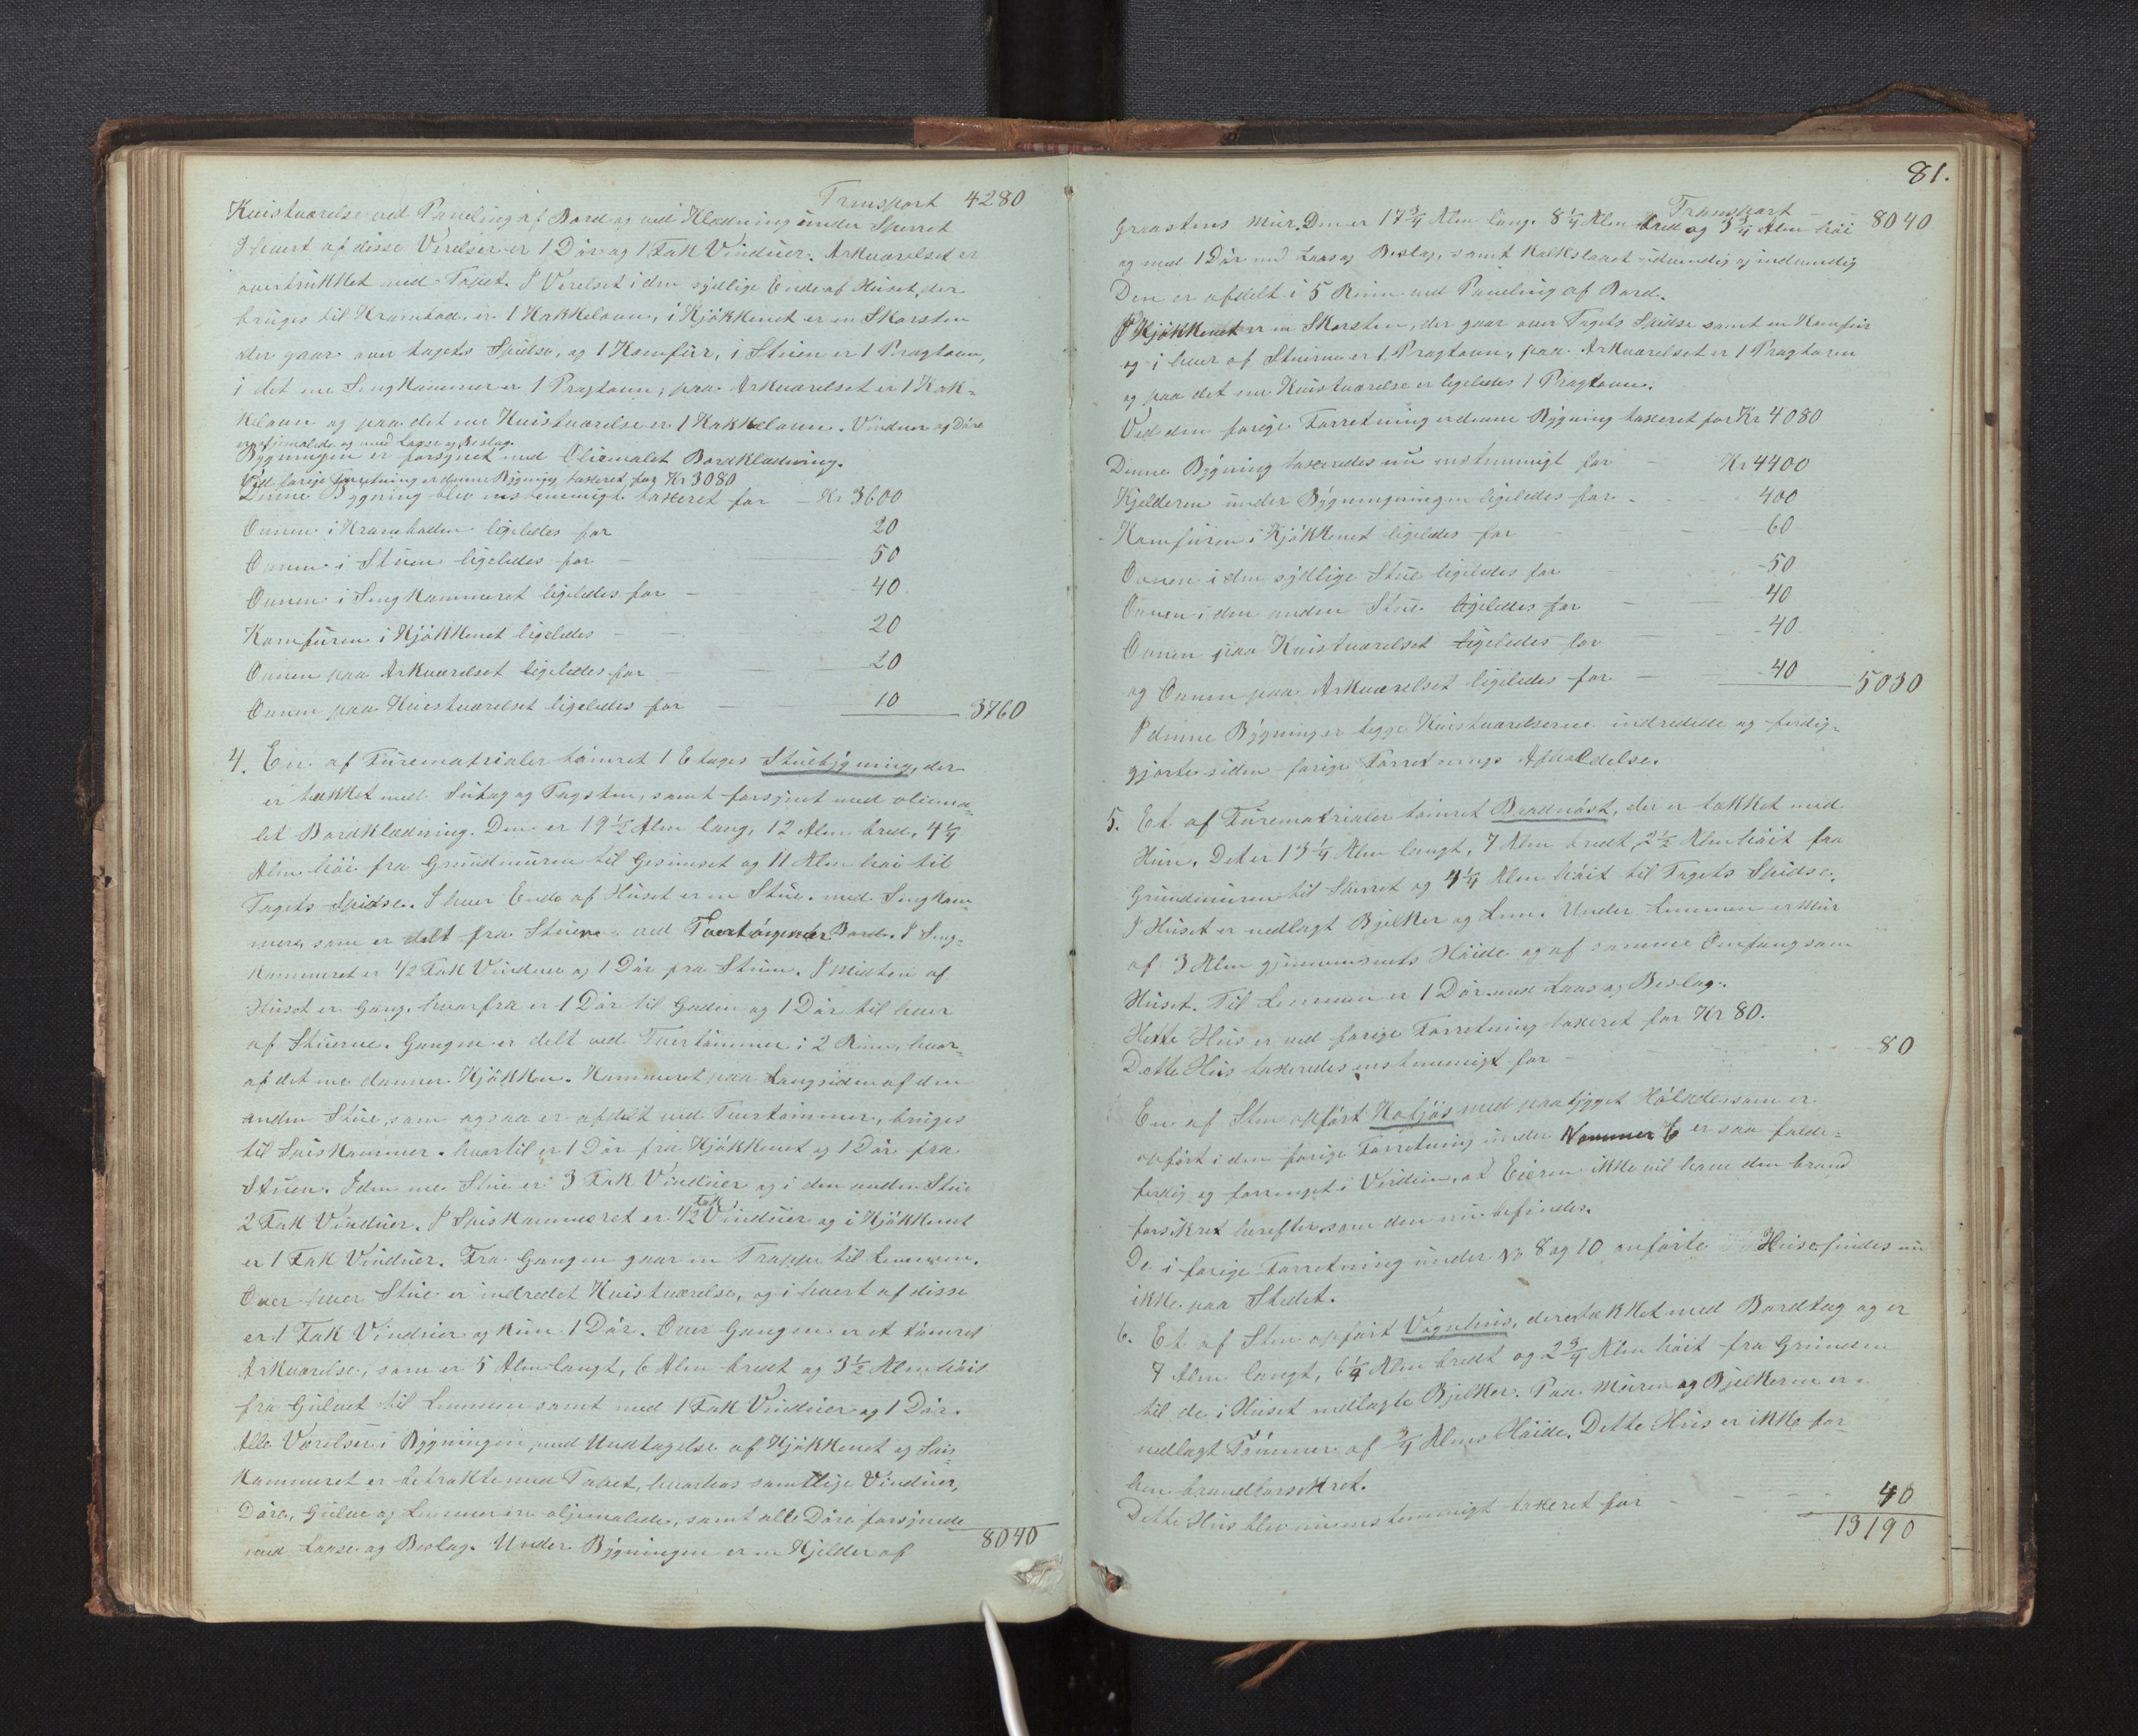 Transport 4280
Kvistværelse ved Paneling af Bord og ved Klædning under Sperret
I hvert af disse Værelser er 1 Dør og 1 Fak Vinduer. Arkværelset er
overtrukket med Tapet. I Værelset i den sydlige Ende af Huset, der
bruges til Krambod, er 1 Kakkelovn, i Kjøkkenet er en Skorsten
der gaar over tagets Spidse, og 1 Komfur, i Stuen er 1 Pragtovn,
i det ene Sengkammer er 1 Pragtovn, paa Arkværelset er 1 Kak=
kelovn og paa det ene Kvistværelse er 1 Kakkelovn. Vinduer og Døre
ere oljemalede og med Laase og Beslag.
Bygningen er forsynet med Oliemalet Bordklædning.
Ved forige Forretning er denne Bygning taxeret for Kr 3080
Denne Bygning blev enstemmigt taxeret for – Kr 3600
Ovnen i Kramboden ligeledes for 20
Ovnen i Stuen ligeledes for – 50
Ovnen i Sengkammeret ligeledes for – 40
Komfuren i Kjøkkenet ligeledes – 20
Ovnen paa Arkværelset ligeledes for – 20
Ovnen paa Kvistværelset ligeledes for – 10 3760
4. En af Furematrialer tømret 1 Etages Stuebygning, der
er tækket med Sutag og Tagsten, samt forsynet med oliema=
let Bordklædning. Den er 19 1/2 Alen lang, 12 Alen bred, 4 1/4
Alen høi fra Grundmuren til Gesimset og 11 Alen høi til
Tagets Spidse. I hver Ende af Huset er en Stue med Sengkam=
mer, som er delt fra Stuerne ved Tvertømmer Bord. I Seng=
kammeret er 1/2 Fak Vinduer og 1 Dør fra Stuen. I Midten af
Huset er Gang, hvorfra er 1 Dør til Gaden og 1 Dør til hver
af Stuerne. Gangen er delt ved Tvertømmer i 2 Rum, hvor=
af det ene danner Kjøkken. Kammeret paa Langsiden af den
anden Stue, som ogsaa er afdelt ved Tvertømmer, bruges
til Spiskammer, hvortil er 1 Dør fra Kjøkkenet og 1 Dør fra
Stuen. I den ene Stue er 3 Fak Vinduer og i den anden Stue
2 Fak Vinduer. I Spiskammeret er 1/2 Fak Vinduer og i Kjøkkenet
er 1 Fak Vinduer. Fra Gangen gaar en Trappe til Lemmen.
Over hver Stue er indredet Kvistværelse, og i hvert af disse
er 1 Fak Vinduer og kun 1 Dør. Over Gangen er et tømret
Arkværelse, som er 5 Alen langt, 6 Alen bredt og 3 1/2 Alen høit
fra Gulvet til Lemmen samt med 1 Fak Vinduer og 1 Dør.
Alle Værelser i Bygningen med Undtagelse af Kjøkkenet og Spis=
kammeret er betrukte med Tapet, hvorhos samtlige Vinduer,
Døre, Gulve og Lemmer ere oljemalede, samt alle Døre forsynede
med Laase og Beslag. Under Bygningen er en Kjelder af 8040
81.
Transport – 8040
Graastens Mur. Den er 17 3/4 Alen lang, 8 1/4 Alen bred og 3 3/4 Alen høi
og med 1 Dør med Laas og Beslag, samt Kalkslaaet udvendig og indvendig
Den er afdelt i 5 Rum ved Paneling af Bord.
I Kjøkkenet er en Skorsten, der gaar over Tagets Spidse samt en Komfur
og i hver af Stuerne er 1 Pragtovn, paa Arkværelset er 1 Pragtovn
og paa det ene Kvistværelse er ligeledes 1 Pragtovn.
Ved den forige Forretning er denne Bygning taxeret for Kr 4080
Denne Bygning taxeredes nu enstemmigt for – Kr 4400
Kjelderen under Bygningningen ligeledes for – 400
Komfuren i Kjøkkenet ligeledes for – 60
Ovnen i den sydlige Stue ligeledes for 50
Ovnen i den anden Stue ligeledes for – 40
Ovnen paa Kvistværelset ligeledes for – 40
og Ovnen paa Arkværelset ligeledes for – 40 5030
I denne Bygning er begge Kvistværelserne indredede og ferdig=
gjorte siden forige Forretnings Afholdelse.
5. Et af Furematrialer tømret Baadnøst, der er tækket med
Hun. Det er 13 1/4 Alen langt, 7 Alen bredt, 2 1/2 Alen høit fra
Grundmuren til Sperret og 4 1/4 Alen høit til Tagets Spidse.
I Huset er nedlagt Bjelker og Lem. Under Lemmen er Mur
af 3 Alen gjennemsnits Høide og af samme Omfang som
Huset. Til Lemmen er 1 Dør med Laas og Beslag.
Dette Hus er ved forige Forretning taxeret for Kr 80.
Dette Hus taxeredes enstemmigt for – 80
En af Sten opført Kofjøs med paabygget Hølade som er
opført i den forige Forretning under Nommer 6 er saa falde=
ferdig og forringet i Verdien, at Eieren ikke vil have den brand
forsikret herefter som den nu befindes.
De i forige Forretning under No 8 og 10 anførte Huse findes nu
ikke paa Stedet.
6. Et af Sten opført Vognhus, der er tækket med Bordtag og er
7 Alen langt, 6 1/4 Alen bredt og 2 3/4 Alen høit fra Grunden
til de i Huset nedlagte Bjelker. Paa Muren og Bjelkerne er
nedlagt Tømmer af 3/4 Alens Høide. Dette Hus er ikke for=
hen brandforsikret.
Dette Hus blev nu enstemmigt taxeret for – 40
13190